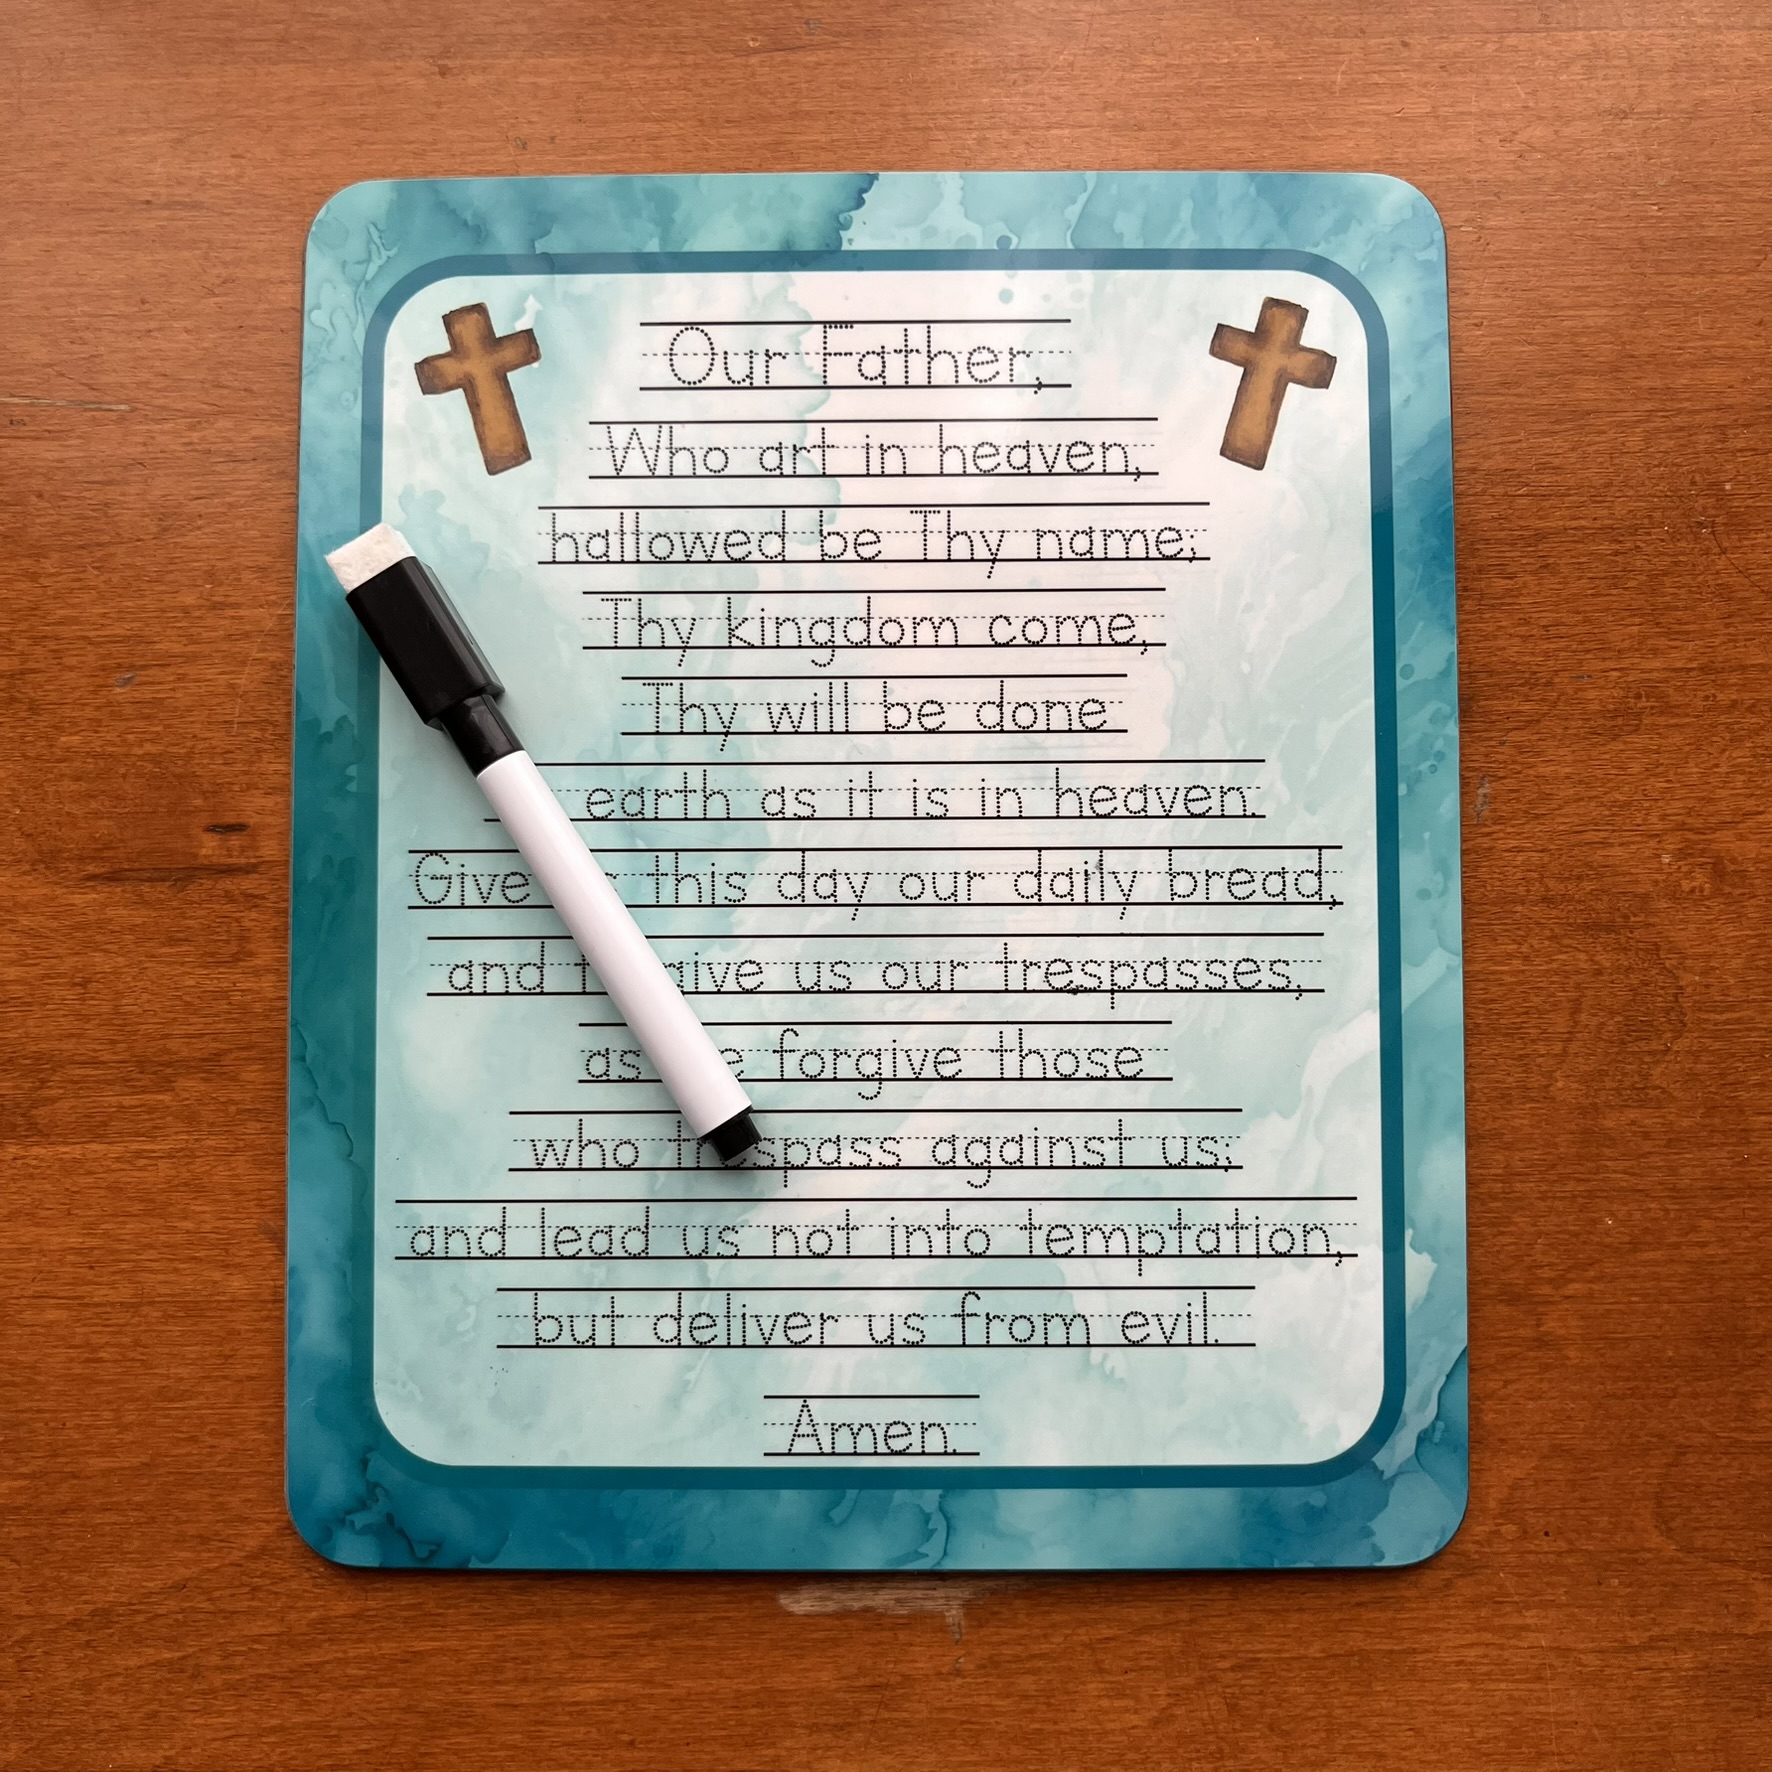 Our Father,
Who art in heaven,
hallowed be Thy name;
Thy kingdom come,
Thy will be done
earth as it is in heaven.
Give this day our daily bread,
and give us our trespasses,
as forgive those
who trespass against us;
and lead us not into temptation,
but deliver us from evil.
Amen.